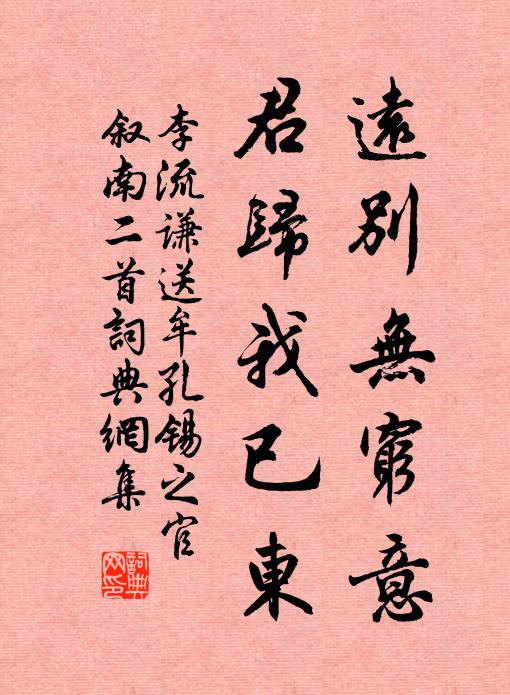 遠別無窮意
君歸我已東
李流謙送牟孔錫之官
叙南二首詞典網集
詞典
网印